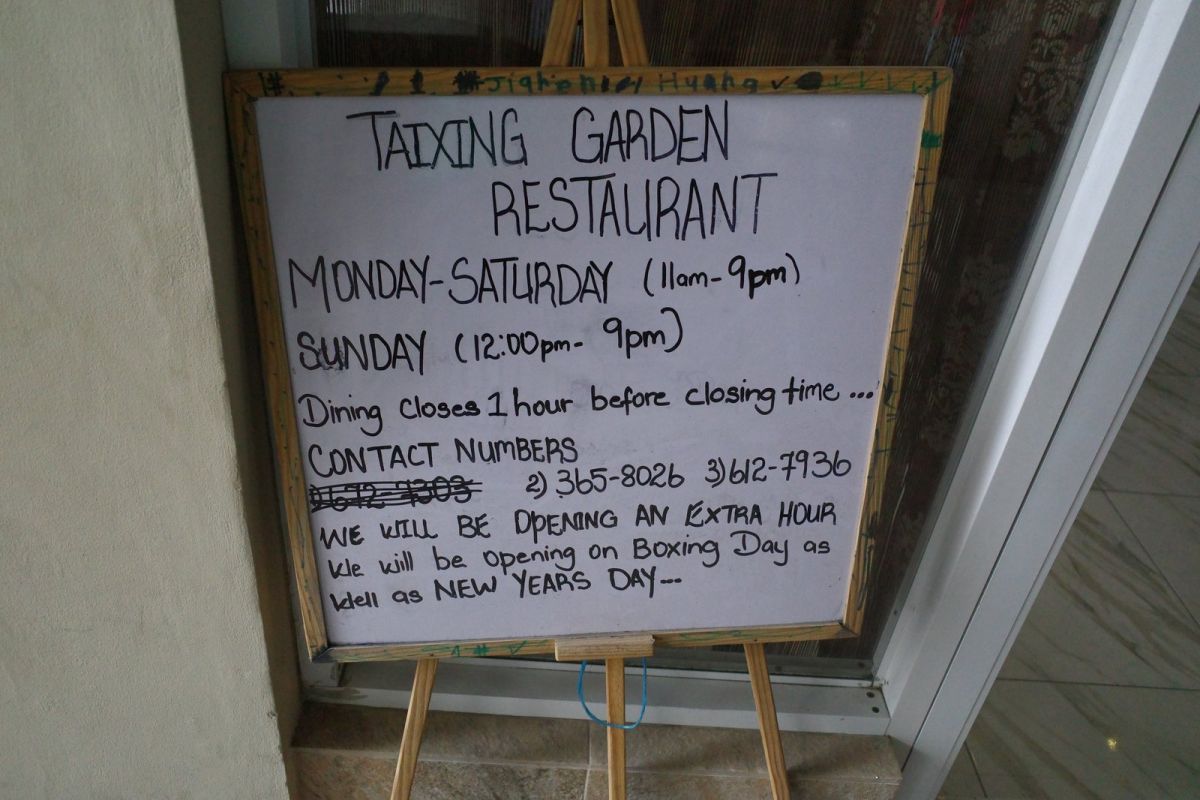 Huang
TAIXING GARDEN
RESTAURANT
MONDAY-SATURDAY (11am-9pm)
SUNDAY (12:00pm- 9pm)
Dining closes 1 hour before closing time...
CONTACT NUMBERS
2) 365-8026 3) 612-7936
WE WILL BE OPENING AN EXTRA HOUR
We will be opening on Boxing Day as
well as NEW YEARS DAY...